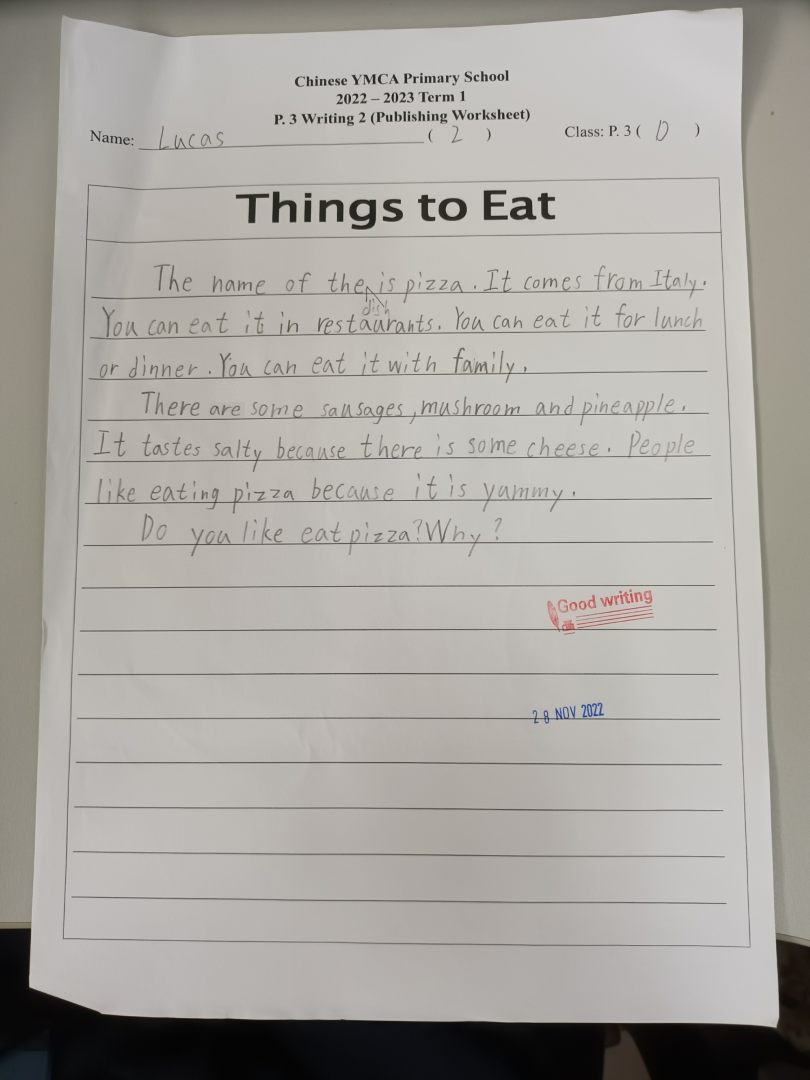 Chinese YMCA Primary School
2022 – 2023 Term 1
P. 3 Writing 2 (Publishing Worksheet)
Name: Lucas ( 2 ) Class: P. 3 ( D )
Things to Eat
The name of the is pizza. It comes from Italy.
dish
You can eat it in restaurants. You can eat it for lunch
or dinner. You can eat it with family.
There are some sausages, mushroom and pineapple.
It tastes salty because there is some cheese. People
like eating pizza because it is yummy.
Do you like eat pizza? Why?
Good writing
28 NOV 2022